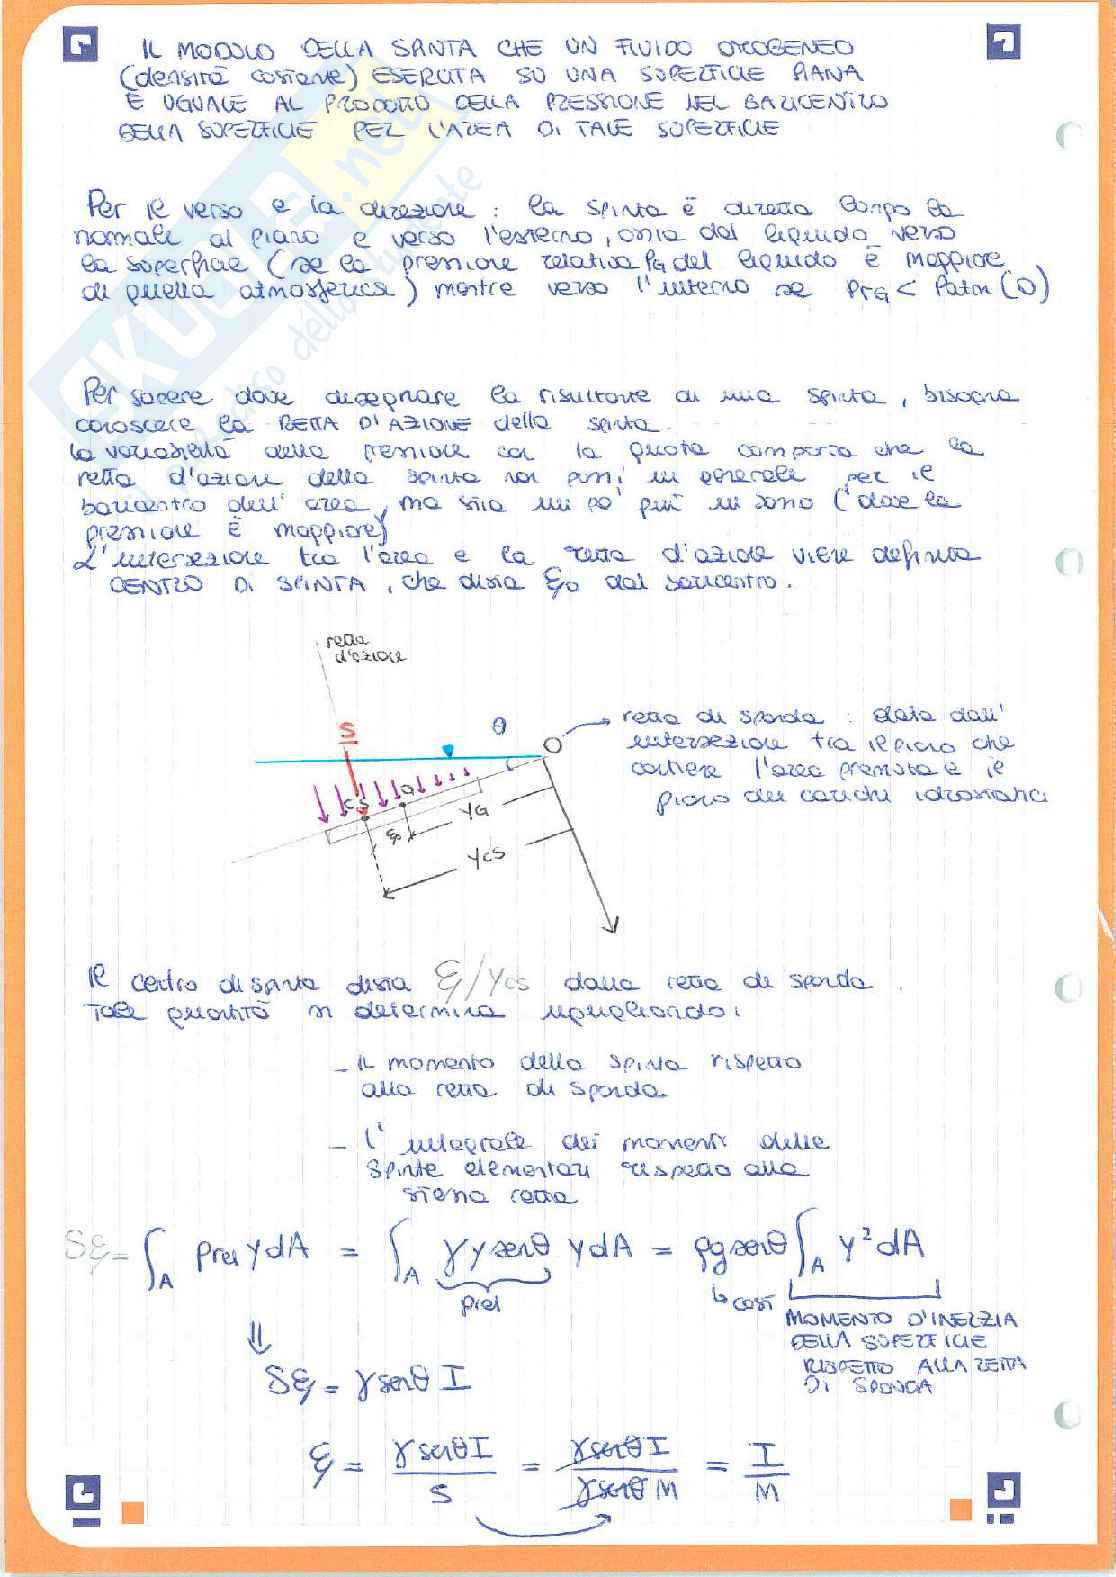 IL MODULO DELLA SPINTA CHE UN FLUIDO OMOGENEO
(densità costante) ESERCITA SU UNA SUPERFICIE PIANA
È UGUALE AL PRODOTTO DELLA PRESSIONE NEL BARICENTRO
DELLA SUPERFICIE PER L'AREA DI TALE SUPERFICIE
Per il verso e la direzione : la spinta è diretta lungo la
normale al piano e verso l'esterno, ossia dal liquido verso
la superficie (se la pressione relativa PG del liquido è maggiore
di quella atmosferica) mentre verso l'interno se PrG < Patm (0)
Per sapere dove disegnare la risultante di una spinta, bisogna
conoscere la RETTA D'AZIONE della spinta.
la variabilità della pressione con la quota comporta che la
retta d'azione della spinta non passi in generale per il
baricentro dell'area, ma stia un po' più in basso (dove la
pressione è maggiore)
L'intersezione tra l'area e la retta d'azione viene definita
CENTRO DI SPINTA, che dista ξ0 dal baricentro.
retta
d'azione
S
θ
O
retta di sponda : data dall'
intersezione tra il piano che
contiene l'area premuta e il
piano dei carichi idrostatici
CS
G
ξ0
YG
YCS
Il centro di spinta dista ξ/YCS dalla retta di sponda.
Tale quantità si determina uguagliando:
- IL momento della spinta rispetto
alla retta di sponda
- l'integrale dei momenti delle
spinte elementari rispetto alla
stessa retta
Sξ = ∫A prel y dA = ∫A γ y senθ y dA = ρg senθ ∫A y² dA
prel
↳ cost
MOMENTO D'INERZIA
DELLA SUPERFICIE
RISPETTO ALLA RETTA
DI SPONDA
⇓
Sξ = γ senθ I
ξ = γ senθ I / S = γ senθ I / γ senθ M = I / M
SKUOLA.net